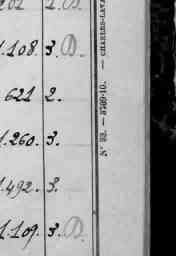 1.108. 3. D.
621 2.
1.260. 3.
1.492. 3.
1.109. 3. D.
N° 93. — 3709-10. — CHARLES-LAVA